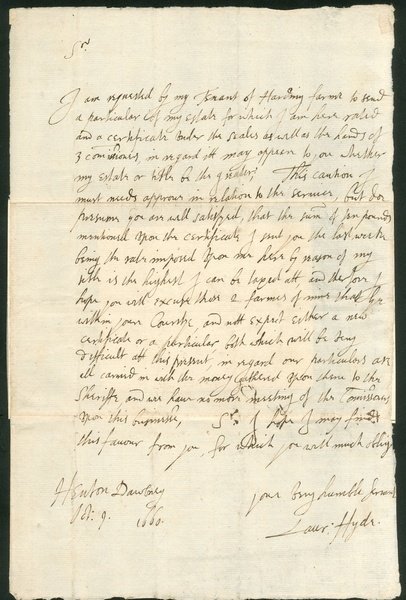 Sr
I am requested by my Tenant of Harding farme to send
a particular of my estate for which I am here rated
and a certificate under the seales as well as the hands of
3 comissioners in regard itt may appear to you whether
my estate or title be the greater. This caution I
must needs approve in relation to the service, but doe
presume you are well satisfied, that the sum of ten pounds
mentioned upon the certificate I sent you the last weeke
being the rate imposed upon me here by reason of my
title is the highest I can be taxed att, and therefore I
hope you will excuse those 2 farmes of mine that lye
within your County, and nott expect either a new
certificate or a particular both which will be very
difficult att this present in regard our particulars are
all carried in with the money gathered upon them to the
Sheriffe and wee have no more meeting of the Comissioners
upon this businesse, Sr I hope I may finde
this favour from you, for which you will much oblige
Henton Dawbney your very humble servant
Oct: 9. 1660. Laur: Hyde.